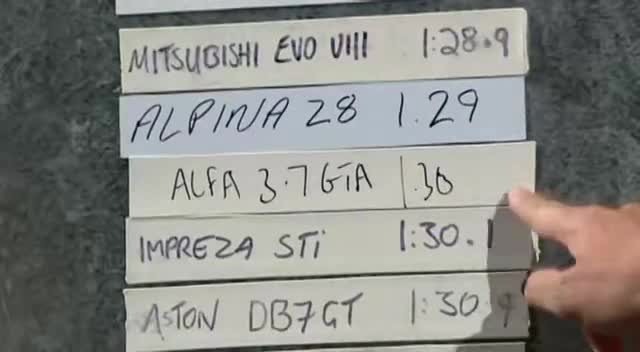 MITSUBISHI EVO VIII 1:28.9
ALPINA Z8 1.29
ALFA 3.7 GTA 1.30
IMPREZA STi 1:30.1
ASTON DB7GT 1:30.9